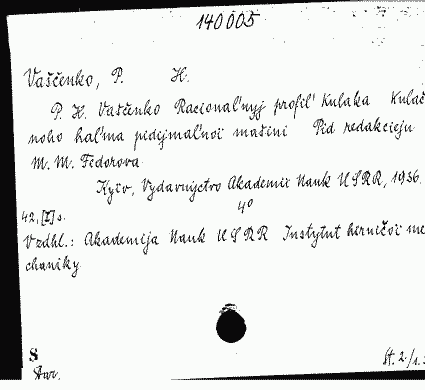 140005
Vaščenko, P. H.
P. H. Vaščenko Racional'nyj profil' Kulaka Kulač
noho hal'ma pidejmal'noï mašini Pid redakcieju
M. M. Fedorova
Kyïv, Vydavnyctvo Akademiï Nauk USRR, 1936.
4°
42, [I] s.
Vzdhl.: Akademija Nauk USRR Instytut hirničoï me
chaniky
S
St. 2/1.